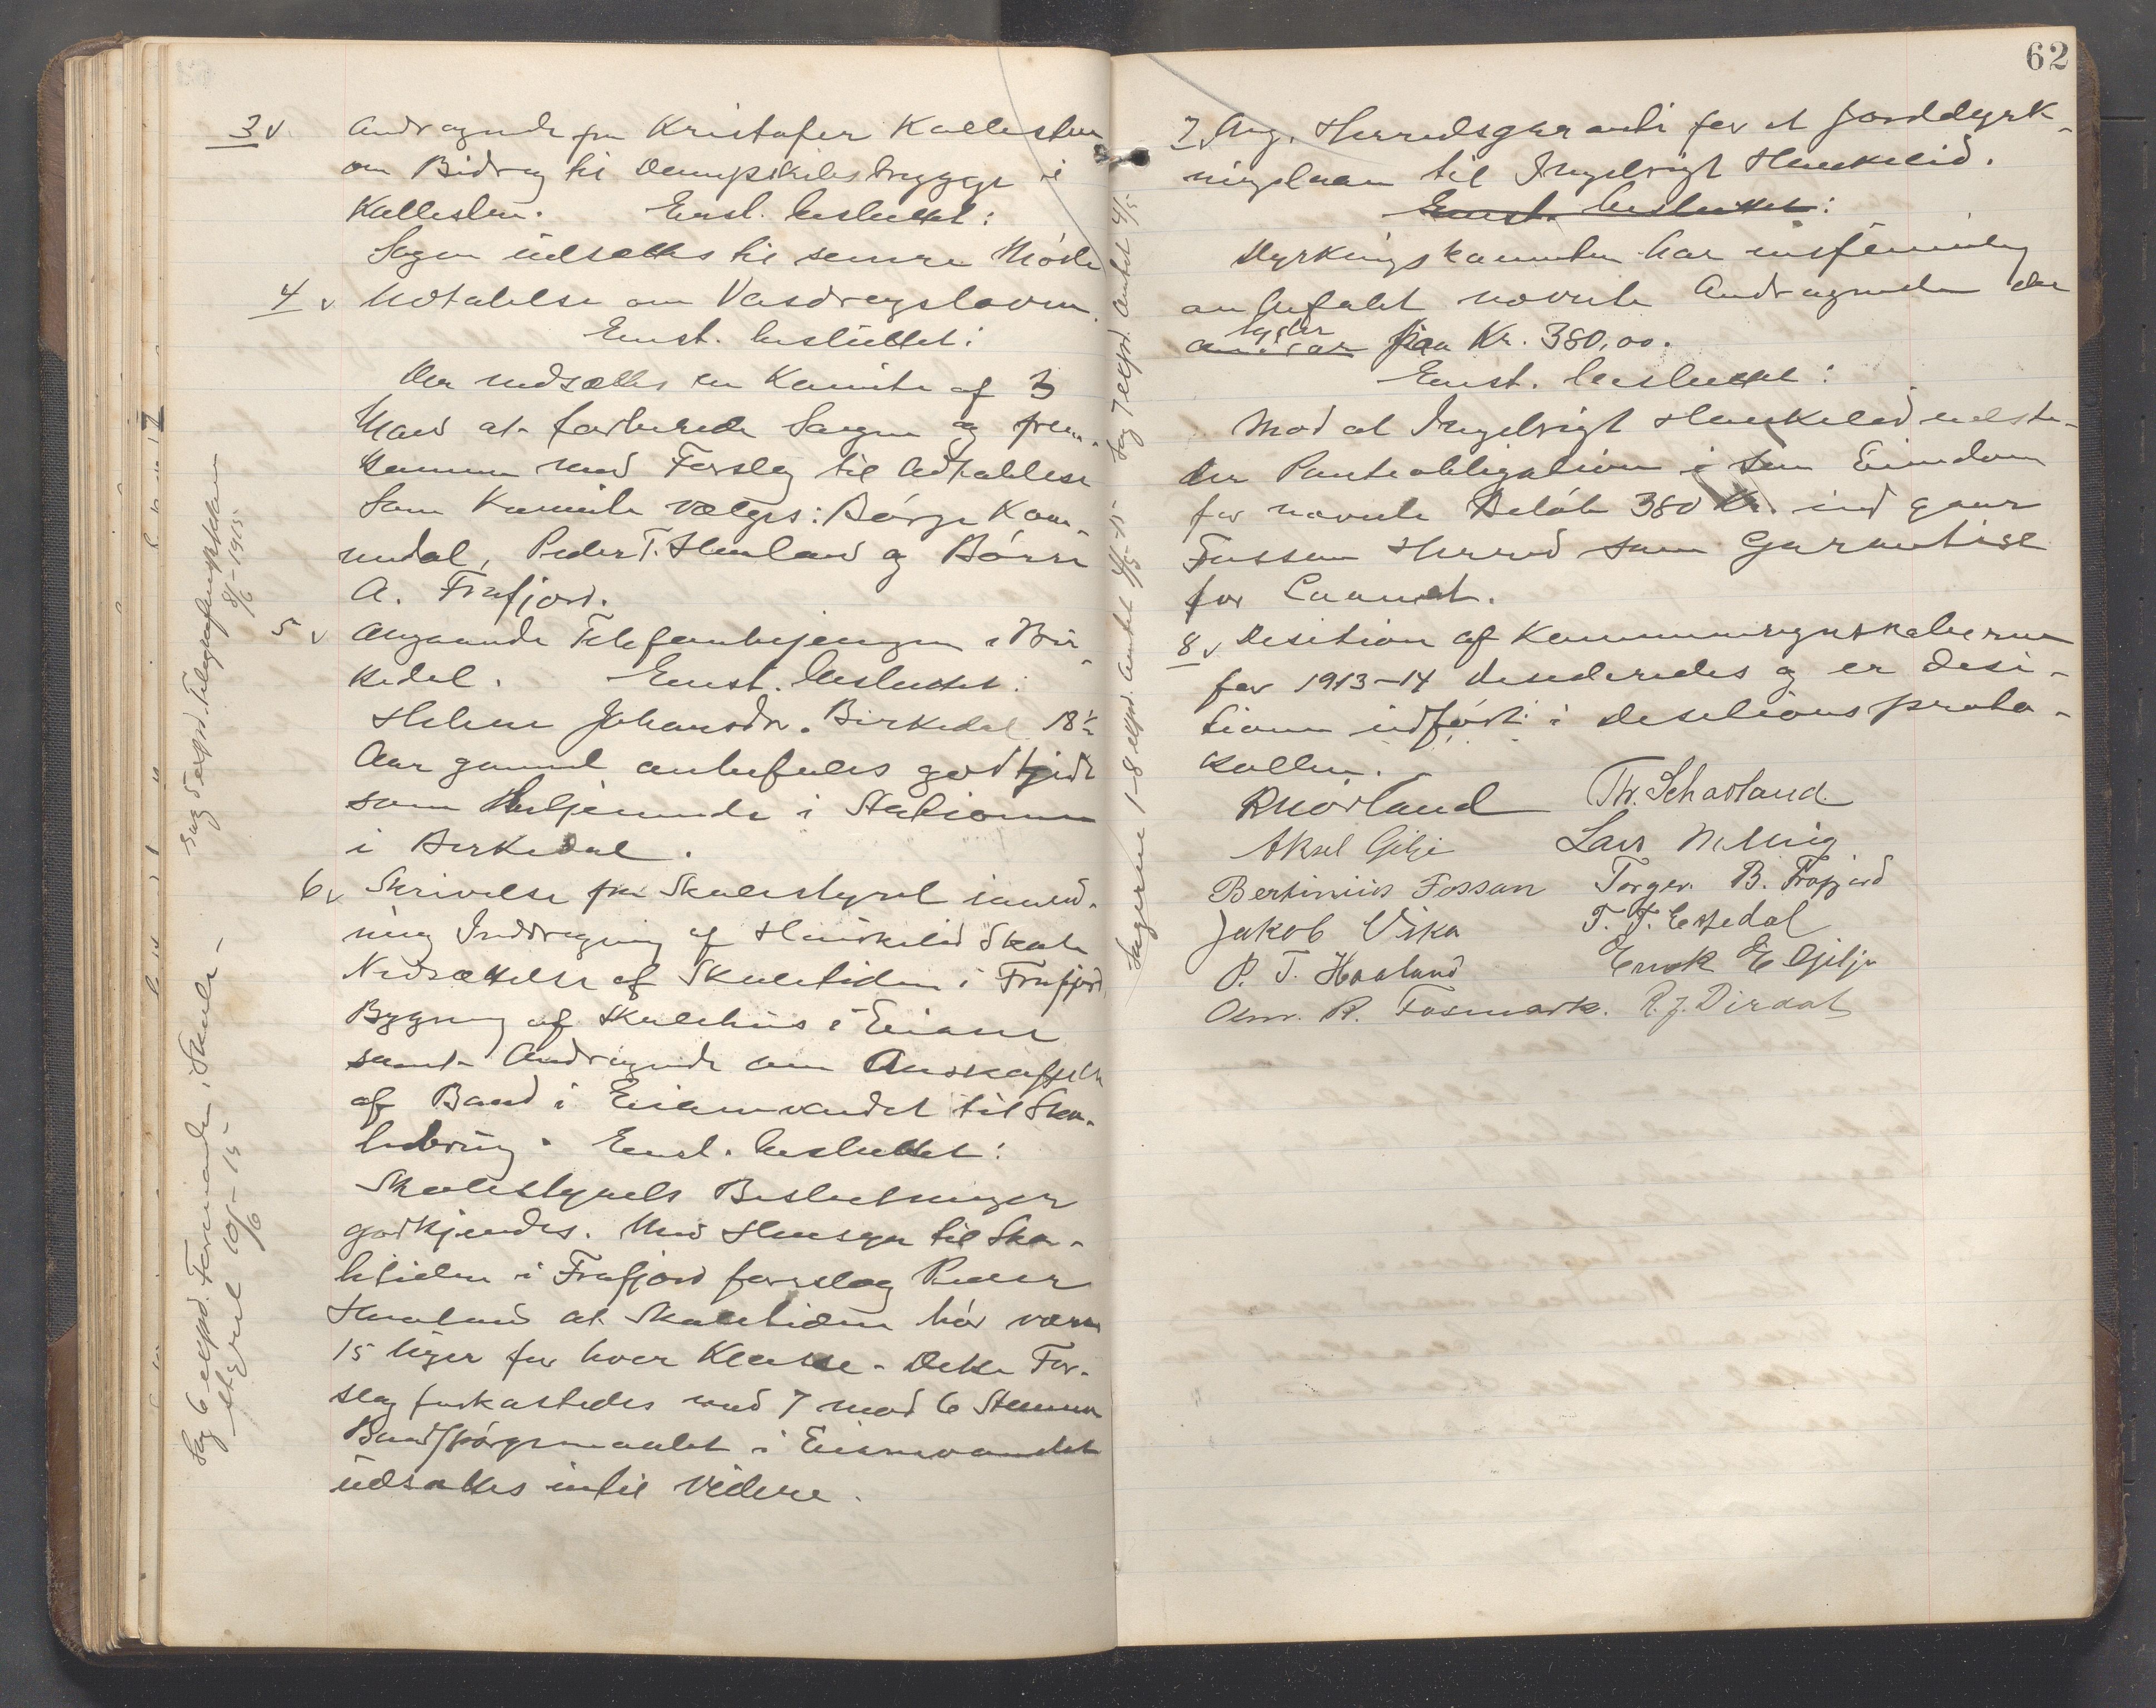 3 v. Andragende fra Kristofer Kallesten
om Bidrag til Dampskibsbrygge i
Kallesten. Enst. besluttet:
Sagen udsættes til senere Møde
4 v Udtalelse om Vasdragsloven.
Enst. besluttet:
Der nedsættes en Komite af 3
Mand at forberede Sagen og frem-
komme med Forslag til Udtalelse
Som Komite vælges: Børge Kom-
medal, Peder T. Haaland og Børre
A. Frafjord.
5 v Angaaende Telefonbetjeningen i Bir-
kedal. Enst. besluttet:
Helene Johansdr. Birkedal 18½
Aar gammel anbefales godkjendt
som Betjenende i Stationen
i Birkedal.
6 v Skrivelse fra Skolestyret
Inddragning af Haukelid Skole
Nedsættelse af Skoletiden i Frafjord
Bygning af Skolehus i Eiane
samt Andragende om Anskaffelse
af Baad i Eianevandet til Sko-
lebring. Enst. besluttet:
Skolestyrets Beslutninger
godkjendes. Med Hensyn til Sko-
letiden i Frafjord foreslog Peder
Haaland at Skoletiden bør være
15 Uger for hver Klasse. Dette For-
slag forkastedes med 7 mod 6 Stemmer
Baadspørgsmaalet i Eianevandet
udsættes indtil videre.
Sag 5 expd. Telegrafinspektøren
8/6-1915
Sag 6 expd. Formanden i Skole-
styret 10/6-15
62
7 Ang. Herredsgaranti for et Jorddyrk-
ningslaan til Ingebrigt Haukelid.
Enst. besluttet:
Dyrkningskomiteen har enstemmig
anbefalet nævnte Andragende der
lyder paa Kr. 380,00.
Enst. besluttet:
Mod at Ingebrigt Haukelid udste-
der Panteobligation i sin Eiendom
for nævnte Beløb 380 Kr. ind gaar
Fossan Herred som Garantist
for Laanet.
8 v Desition af Kommuneregnskaberne
for 1913-14 desideredes og er desi-
tionen indført i Desitionsproto-
kollen.
RMørland Th. Schavland
Aksel Gilje Lars N. Meig
Bertinius Fossan Torger B. Frafjord
Jakob Vika T. T. Espedal
P. T. Haaland Enok E Gilje
Osm. R. Fosmark. R. J. Dirdal
Sagerne 1-8 expd. Amtet 4/5-15 Sag 7 expd. Amtet 4/5